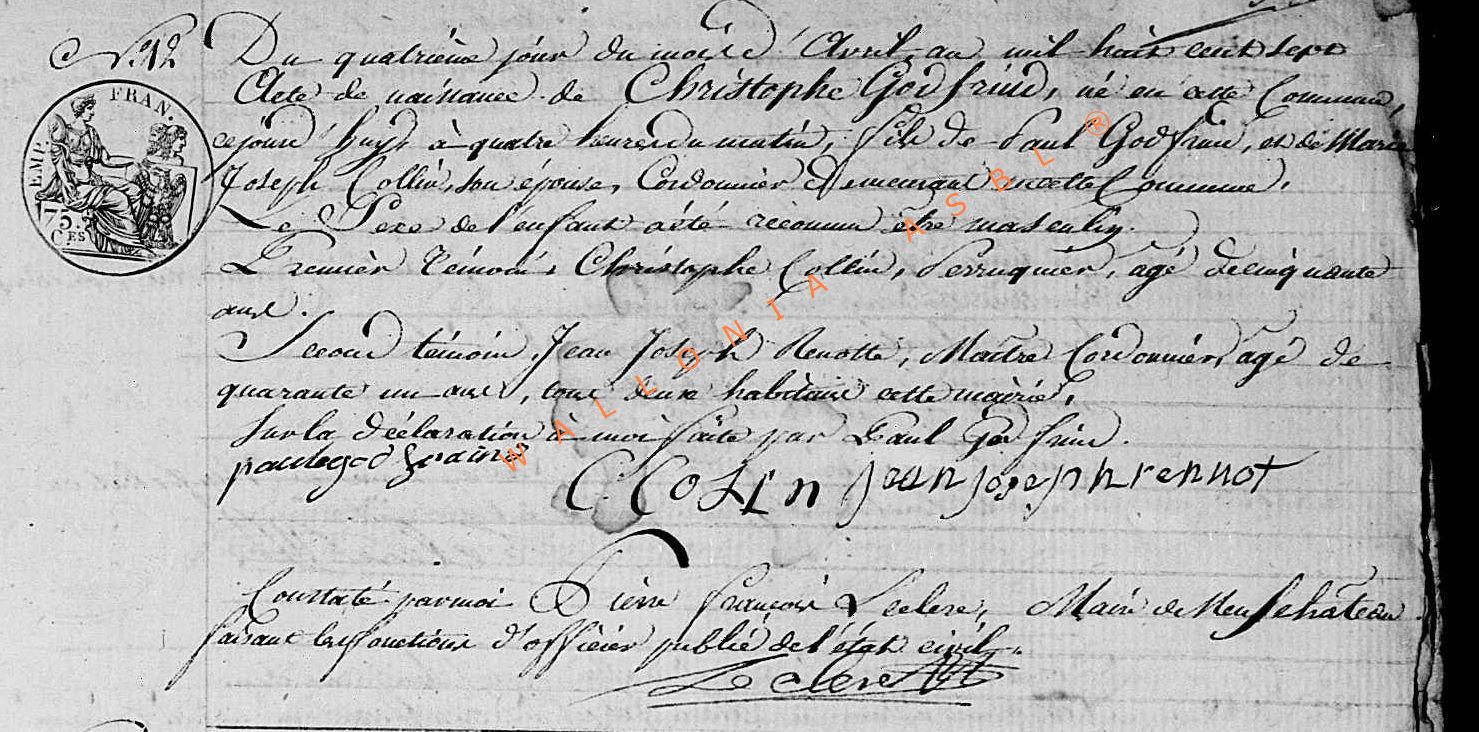 N.° 12
Du quatrième jour du mois d'Avril an mil huit cent sept
Acte de naissance de Christophe Godfrin, né en cette Commune,
cejourd'huy, à quatre heures du matin, fils de Paul Godfrin, et de Marie
Joseph Collin, son épouse, Cordonnier demeurant en cette Commune.
Le Sexe de l'enfant a été reconnu être masculin.
Premièr Témoin, Christophe Collin, Perruquier, agé de cinquante
ans.
Second témoin, Jean Joseph Renotte, Maître Cordonnier, agé de
quarante un ans, tous deux habitans cette mairie.
Sur la déclaration à moi faite par Paul Godfrin.
C Colin jean joseph rennot
Constaté par moi Pierre François Leclere, Maire de Neufchâteau
faisant les fonctions d'officier public de l'état civil.
Leclere
EMP. FRAN.
75.
CES
WALLONIA ASBL ®